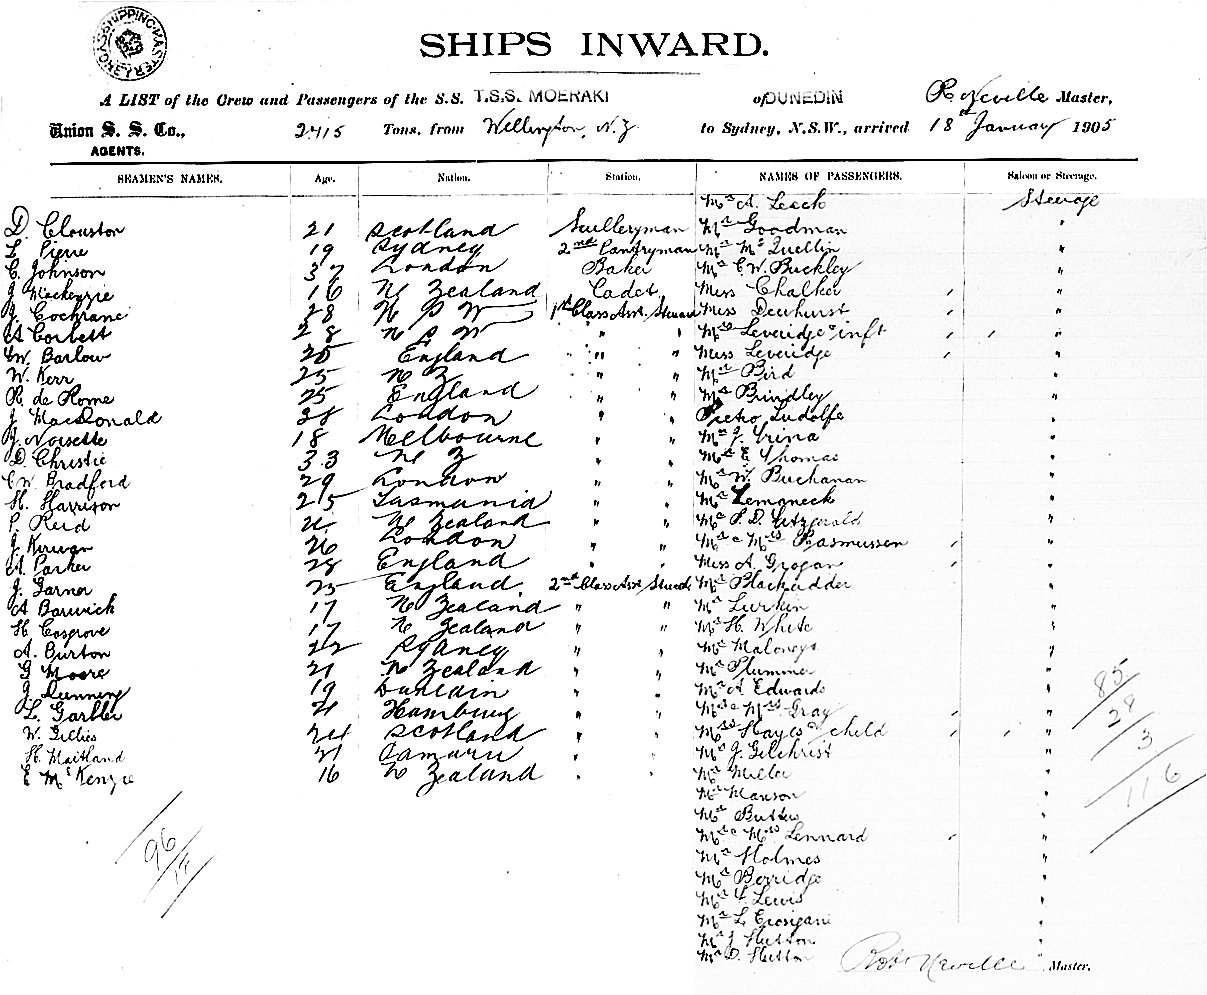 SHIPPING MASTER
SHIPS INWARD.
A LIST of the Crew and Passengers of the S.S. T.S.S. MOERAKI of DUNEDIN R Neville Master,
Union S. S. Co., 2415 Tons, from Wellington, N.Z to Sydney, N.S.W., arrived 18th January 1905
AGENTS.
SEAMEN'S NAMES. Age. Nation. Station. NAMES OF PASSENGERS. Saloon or Steerage.
Mr A. Leech Steerage
D. Clouston 21 Scotland Sculleryman Mr Goodman "
19 Sydney 2nd Pantryman Mr McQuellin "
C. Johnson 37 London Baker Mr C.W. Buckley "
J. Mackenzie 16 N Zealand Cadet Miss Chalker "
J. Cochrane 28 N S W 1st Class Asst Steward Miss Dewhurst "
A Corbett 28 N S W " " Mrs Leveridge & inft "
W. Barlow 25 England " " Miss Leveridge "
W. Kerr 25 N Z " " Mr Bird "
R. de Rome 25 England " " Mr Brindley "
J. MacDonald 38 London " " Pietro Ludolfe "
J. Noisette 18 Melbourne " " Mr J. "
D. Christie 33 N Z " " Mr E Thomas "
C.W. Bradford 29 London " " Mr W. Buchanan "
H. Harrison 25 Tasmania " " Mr "
P. Reid N Zealand " " Mr P. D. Fitzgerald "
J. Kirwan 26 London " " Mr & Mrs Rasmussen "
A Parker 28 England " " Miss A. Grogan "
J. Garner 25 England 2nd Class Asst Steward Mr Blackadder "
A Barwick 17 N Zealand " " Mr Lurkin "
H. Cosgrove 17 N Zealand " " Mr H. White "
A. Burton 22 Sydney " " Mr Maloney "
G Moore 21 N Zealand " " Mr Plummer "
J. Dunning 19 Dunedin " " Mr A Edwards "
L. 21 Hamburg " " Mr & Mrs Gray "
W. Gillies 24 Scotland " " Mrs Hayes & child "
H. Maitland 21 Oamaru " " Mr J. Gilchrist "
E McKenzie 16 N Zealand " " Mr Miller "
Mr Manson "
Mr "
Mr & Mrs Lennard "
Mr Holmes "
Mr Berridge "
Mr Lewis "
Mr L. "
Mr J Hutton "
Mr D. Hutton "
Robt Neville Master.
96
85
28
3
116